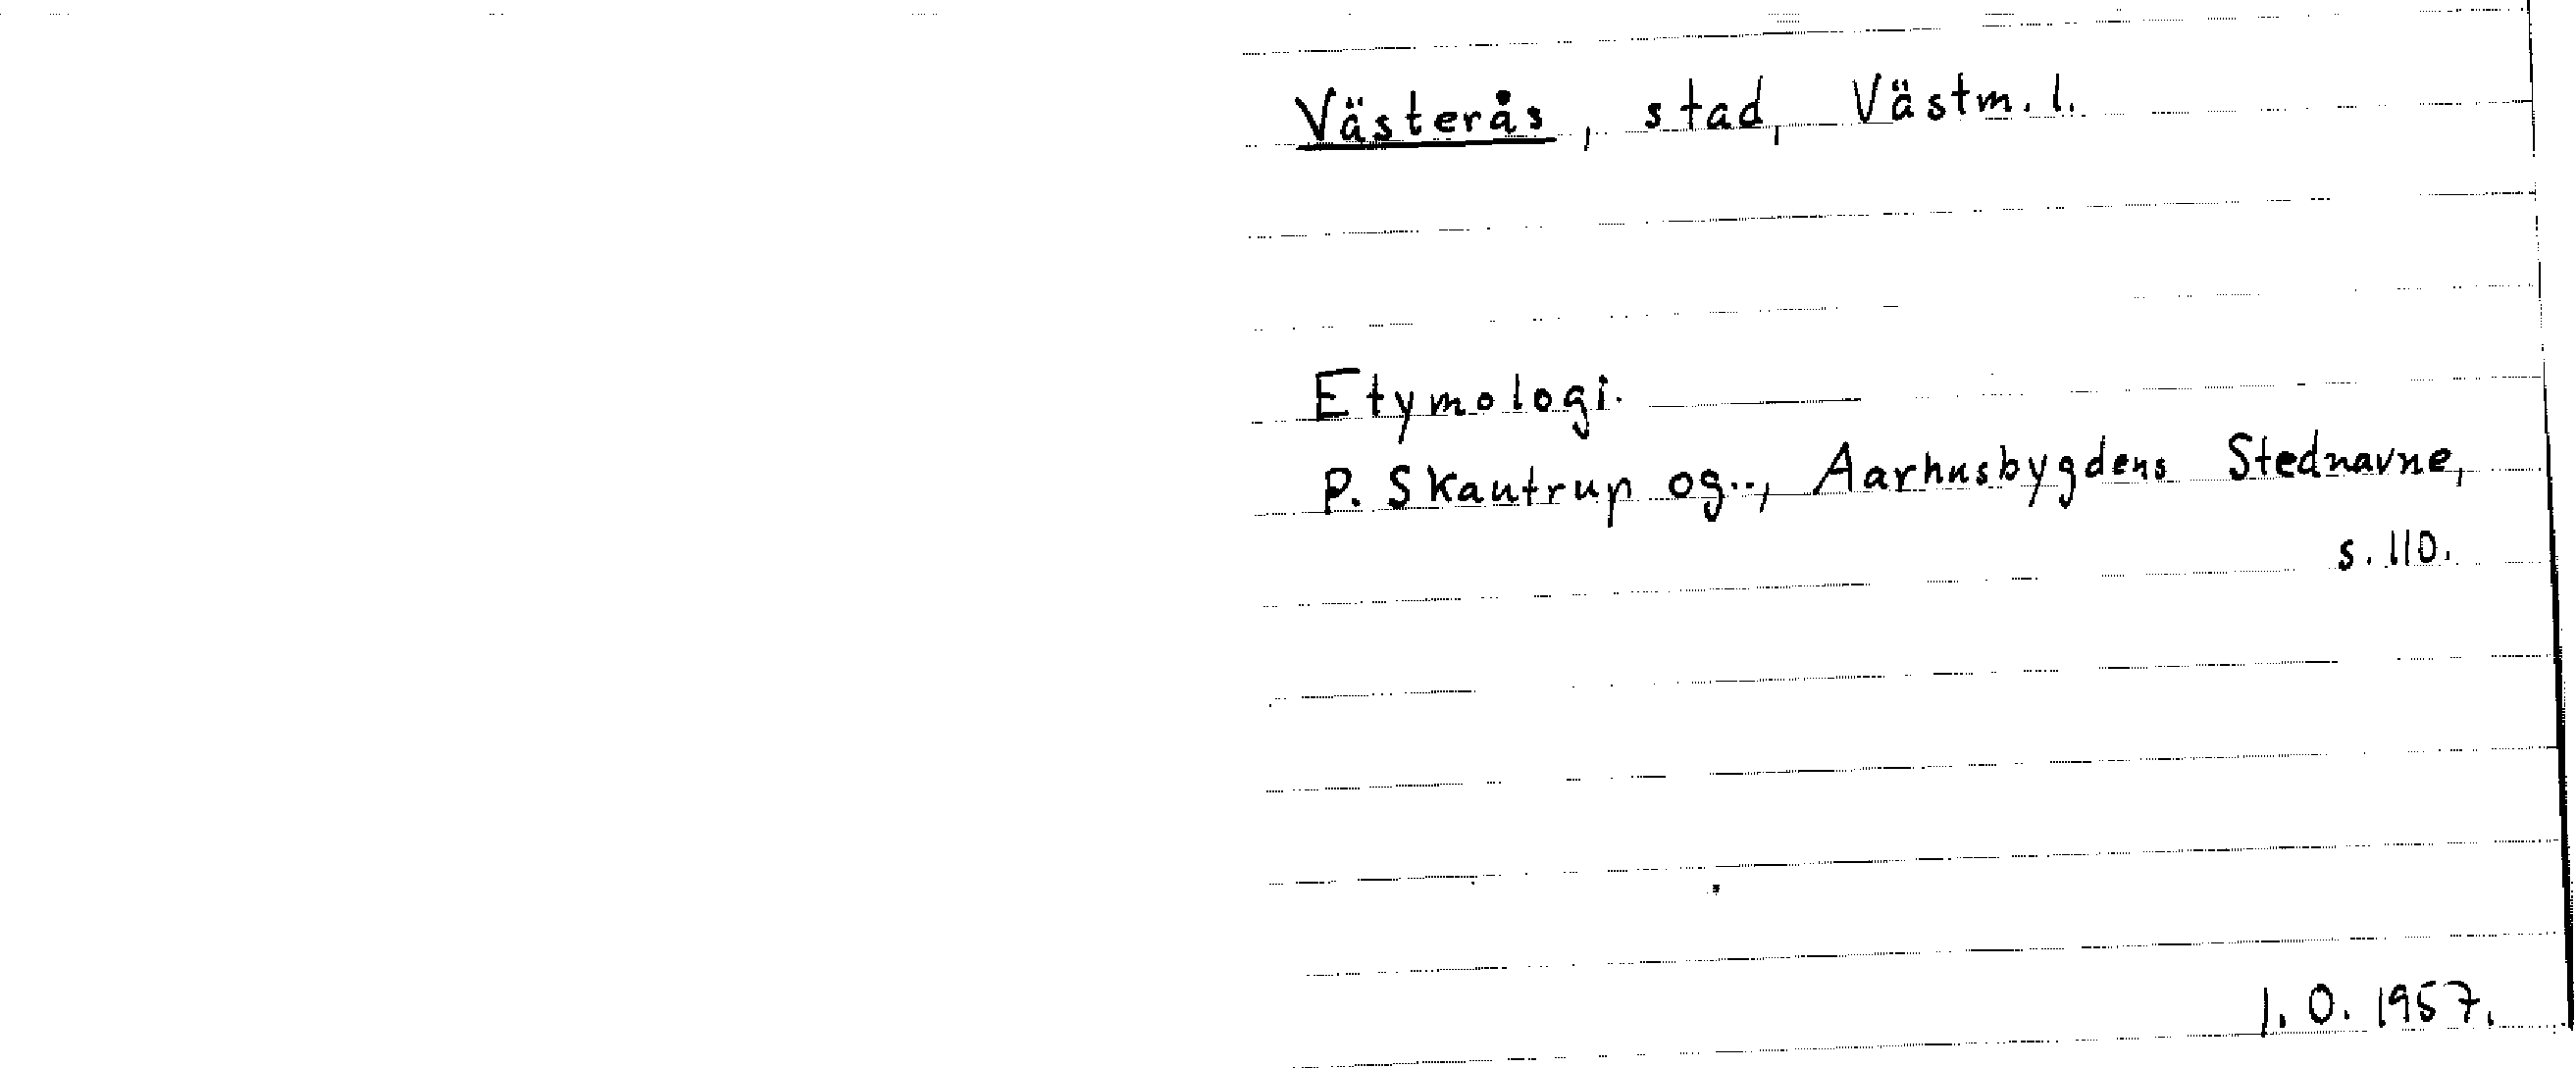 Västerås, stad, Västm. l.
Etymologi.
P. Skautrup og.., Aarhusbygdens Stednavne,
s. 110.
J. O. 1957.